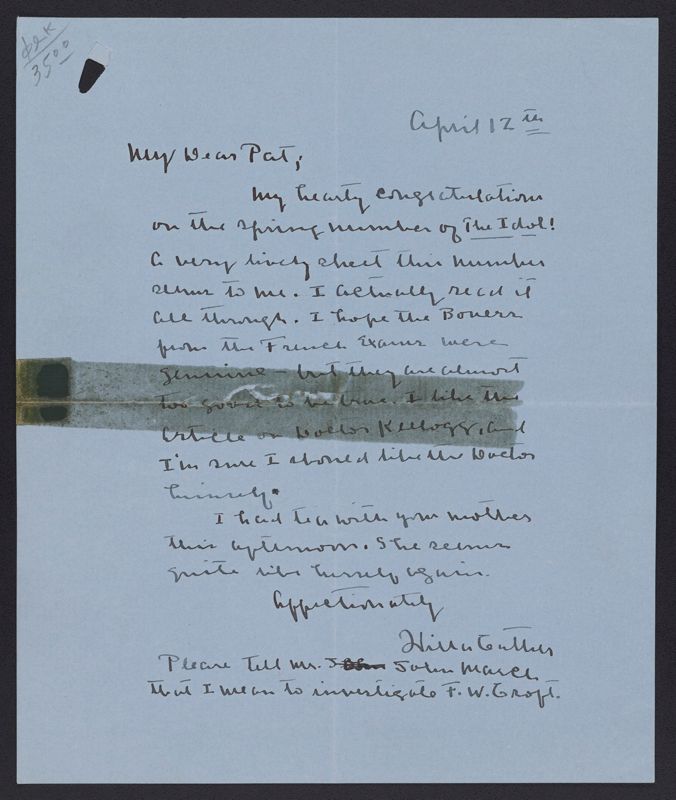 $2K
3500
April 12th
My Dear Pat;
My hearty congratulations
on the spring number of The Idol!
A very lively sheet this number
seems to me. I actually read it
all through. I hope the Boners
from the French Exams were
genuine - but they are almost
too good to be true. I like the
article on Doctor Kellogg, and
I'm sure I should like the Doctor
himself.
I had tea with your mother
this afternoon. She seems
quite like herself again.
Affectionately
Willa Cather
Please tell Mr. John March
that I mean to investigate F. W. Croft.